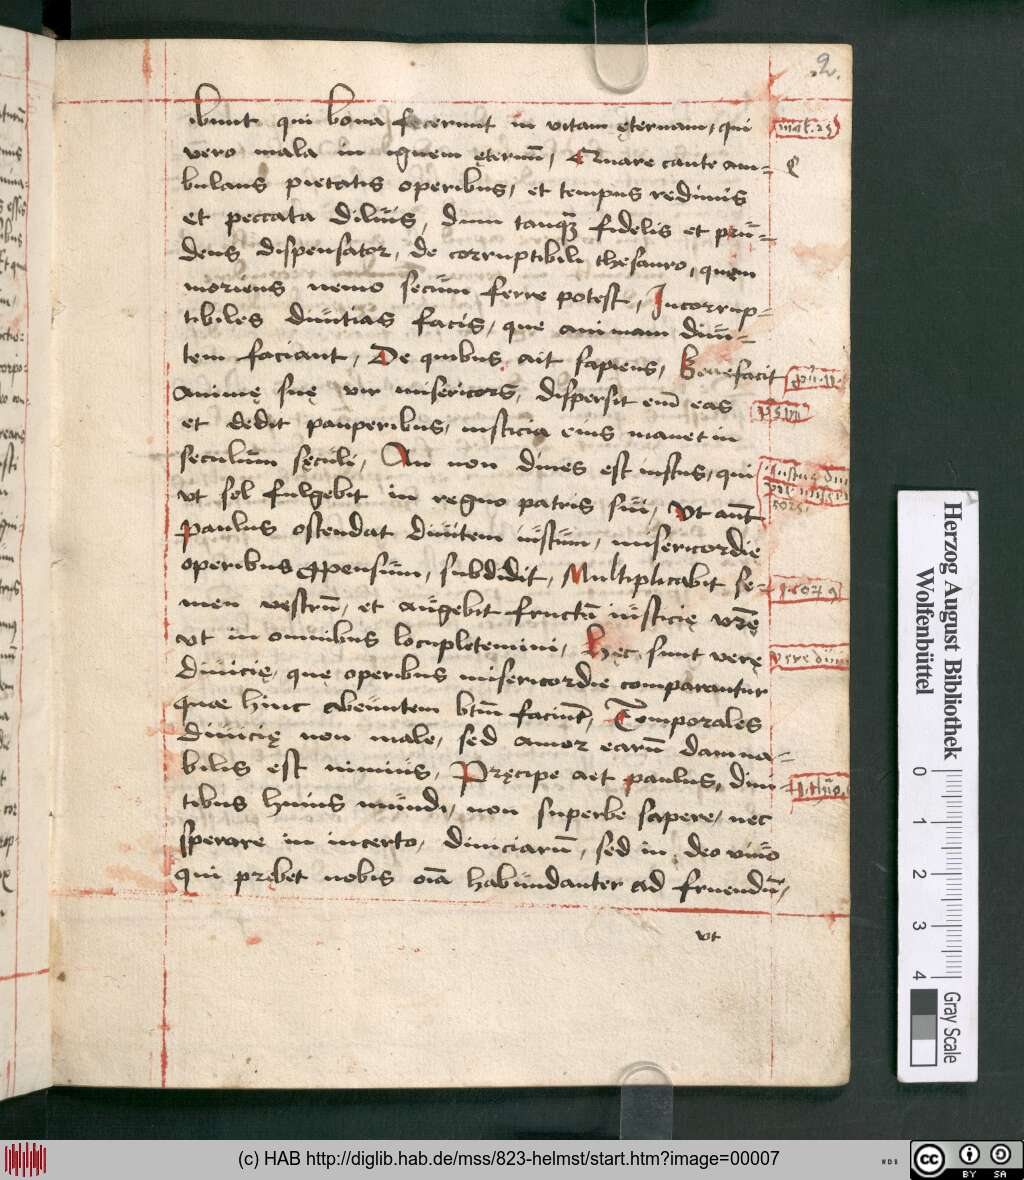 2.
ibunt qui bona fecerunt in vitam ęternam, qui
mat. 25
vero mala in ignem ęternū, Quare caute am-
bulans pietatis operibus, et tempus redimis
et peccata diluis, dum tanq̃ fidelis et pru-
dens dispensator, de corruptibili thesauro, quem
moriens nemo secum ferre potest, Incorrup-
tibiles diuitias facis, que animam diui-
tem faciant, De quibus ait sapiens, Benefacit
animę suę vir misericors, dispersit em̄ eas
et dedit pauperibus, iusticia eius manet in
seculum sęculi, An non diues est iustus, qui
vt sol fulgebit in regno patris sui, Vt aūt
Paulus ostendat diuitem iustum, misericordię
operibus ꝓpensum, subdidit, Multiplicabit se-
men vestrū, et augebit fructū iusticię vr̄ę
vt in omnibus locupletemini, Hęc sunt verę
diuicię, quę operibus misericordie comparantur
quae hinc abeuntem btm̄ faciūt, Temporales
diuicię non male, sed amor earū damna-
bilis est nimius, Pręcipe aet paulus, diui-
tibus huius mundi, non superbe sapere, nec
sperare in incerto, diuiciarū, sed in deo viuo
qui prębet nobis oīa habundanter ad fruendū,
vt
Herzog August Bibliothek
Wolfenbüttel
0 1 2 3 4
Gray Scale
(c) HAB http://diglib.hab.de/mss/823-helmst/start.htm?image=00007
cc BY SA